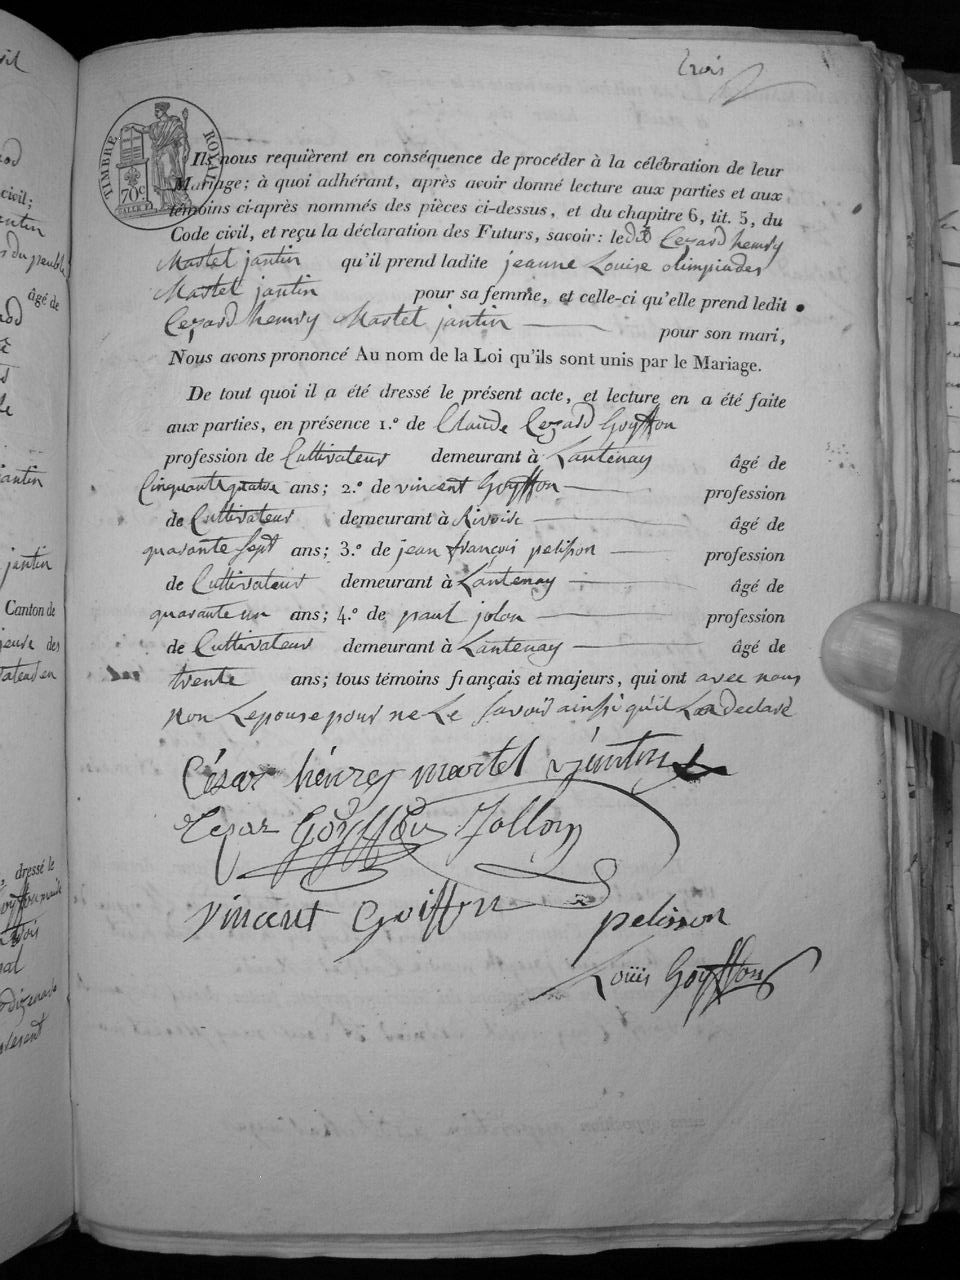 Trois
TIMBRE ROYAL
70c
Ils nous requièrent en conséquence de procéder à la célébration de leur
Mariage; à quoi adhérant, après avoir donné lecture aux parties et aux
témoins ci-après nommés des pièces ci-dessus, et du chapitre 6, tit. 5, du
Code civil, et reçu la déclaration des Futurs, savoir: ledit Cezard henry
Martel jantin qu'il prend ladite jeanne Louise olimpiades
Martel jantin pour sa femme, et celle-ci qu'elle prend ledit
Cezard henry Martel jantin pour son mari,
Nous avons prononcé Au nom de la Loi qu'ils sont unis par le Mariage.
De tout quoi il a été dressé le présent acte, et lecture en a été faite
aux parties, en présence 1.º de Claude Cezard Goyffon
profession de Cultivateur demeurant à Lantenay âgé de
Cinquante quatre ans; 2.º de vincent Goyffon profession
de Cultivateur demeurant à Rivoire âgé de
quarante Sept ans; 3.º de jean françois pelisson profession
de Cultivateur demeurant à Lantenay âgé de
quarante un ans; 4.º de paul jolon profession
de Cultivateur demeurant à Lantenay âgé de
trente ans; tous témoins français et majeurs, qui ont avec nous
non Lepouse pour ne Le Savoir ainsi qu'il La declaré
César hénrey martel jéinton
Cezar Goyffon Jollon
Vincent Goiffon
pelisson
Louis Goyffon
civil;
âgé de
jantin
Canton de
dressé le